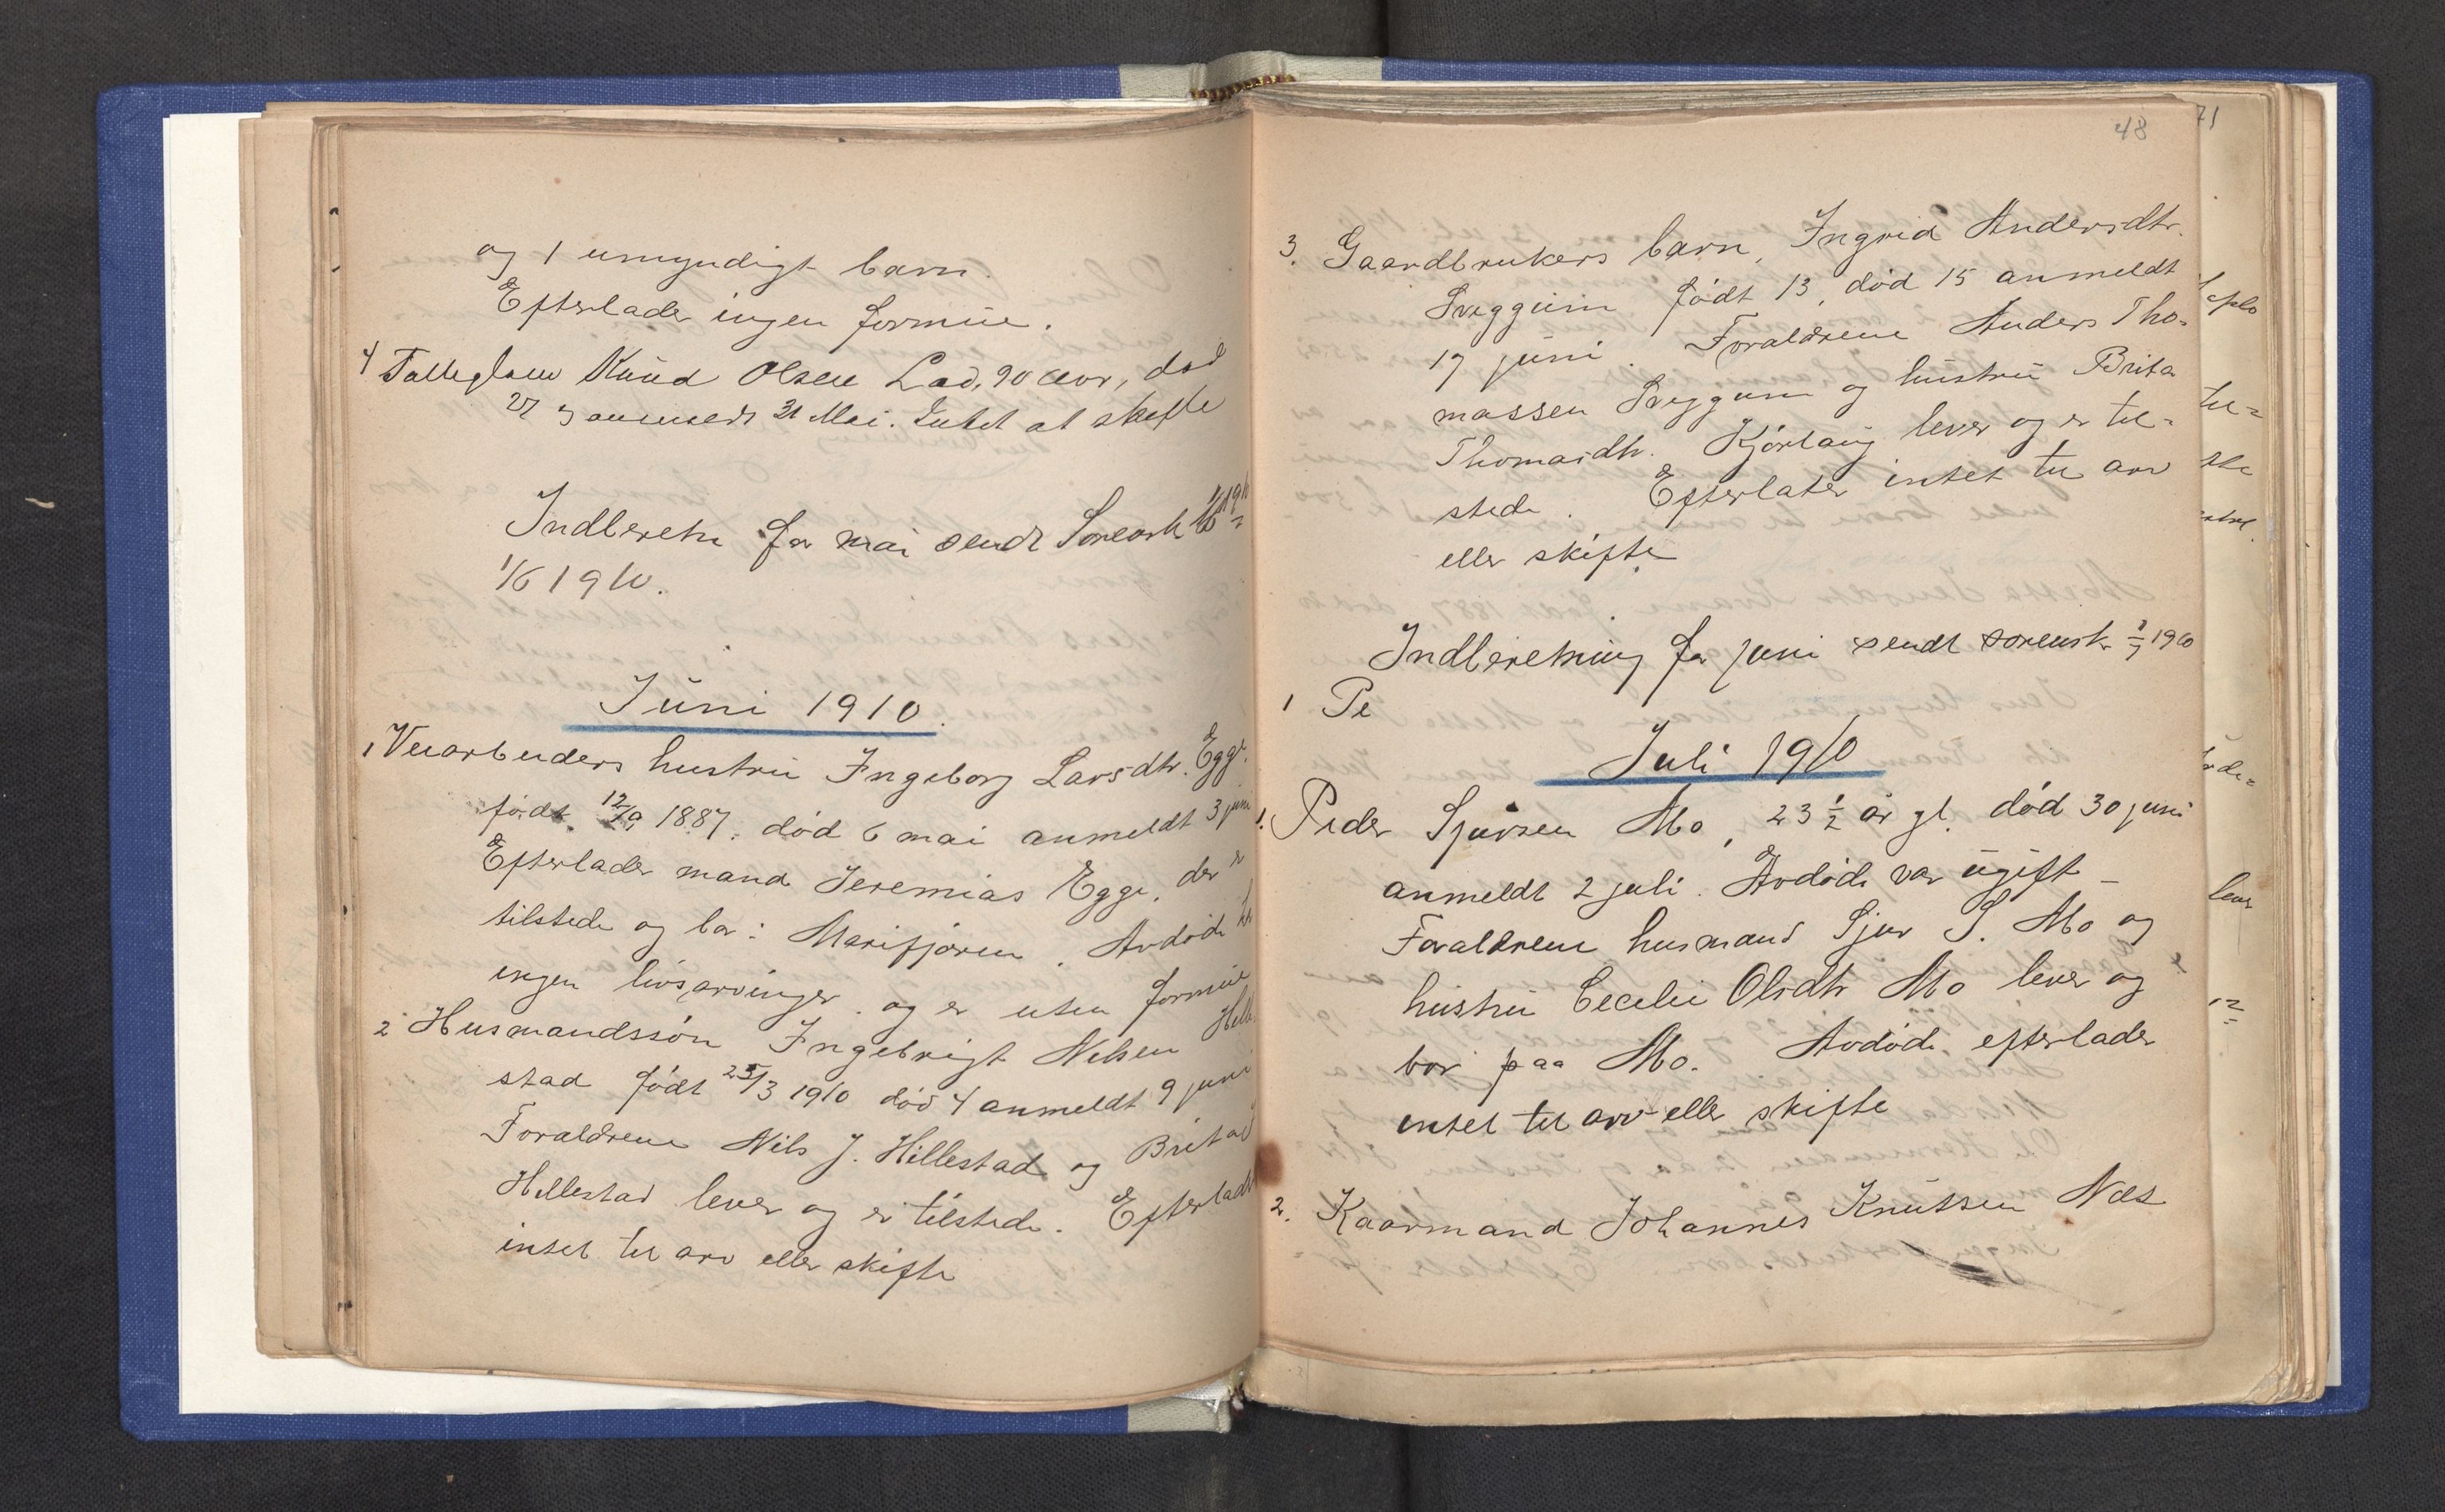 og 1 umyndigt barn.
Efterlader ingen formue.
4 Knud Olsen Lad, 90 aar, død
27 og anmeldt 31 Mai. Intet at skifte
Indberetn for mai sendt Sorensk
1/6 1910.
Juni 1910.
1 Veiarbeiders hustru Ingeborg Larsdtr. Egge.
født 12/9 1887. død 6 mai anmeldt 3 juni
Efterlader mand Jeremias Egge. der er
tilstede og bor i Marifjøren. Avdøde
ingen livsarvinger og er uten formue
2 Husmandssøn Ingebrigt Nilsen Hille
stad født 25/3 1910 død 4 anmeldt 9 juni
Forældrene Nils J. Hillestad og Brita
Hillestad lever og er tilstede. Efterlader
intet til arv eller skifte
48
3. Gaardbrukers barn, Ingrid Andersdtr.
Sveggum født 13, død 15 anmeldt
17 juni. Forældrene Anders Tho-
massen Sveggum og hustru Brita
Thomasdtr. Kjørlaug lever og er til-
stede. Efterlater intet til arv
eller skifte
Indberetning for juni sendt sorensk. 1/7 1910
1 Pe
Juli 1910
1. Peder Sjursen Mo, 23 1/2 år gl. død 30 juni
anmeldt 2 juli. Avdøde var ugift –
Forældrene husmand Sjur S. Mo og
hustru Cecilie Olsdtr Mo lever og
bor paa Mo. Avdøde efterlader
intet til arv eller skifte
2. Kaarmand Johannes Knutsen Næs
71